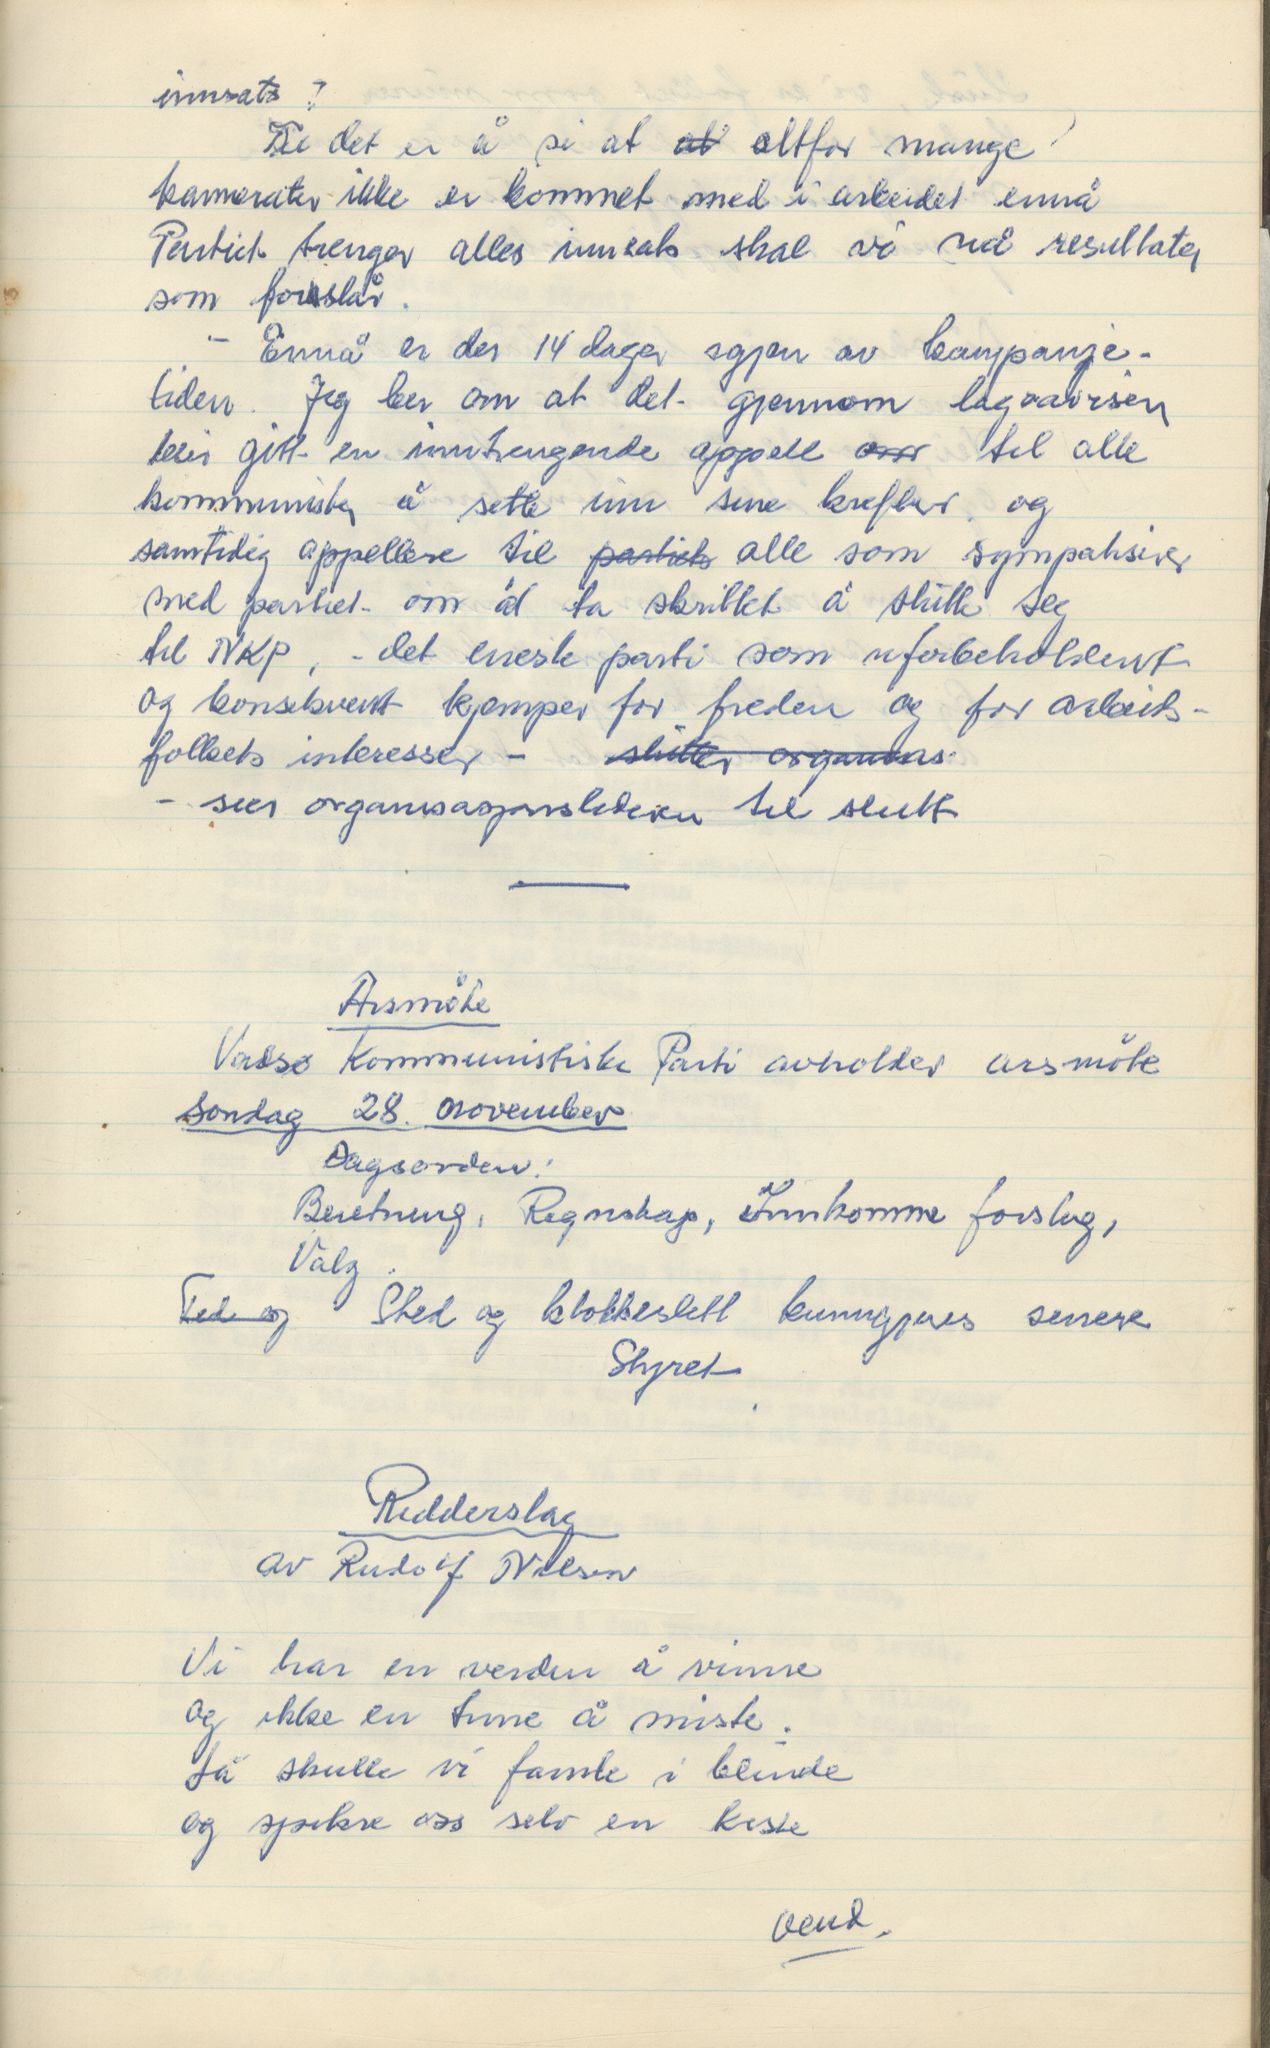 innsats?
Til det er å si at at altfor mange
kamerater ikke er kommet med i arbeidet ennå
Partiet trenger alles innsats skal vi nå resultater
som forslår.
- Ennå er der 14 dager igjen av kampanje-
tiden. Jeg ber om at det gjennom lagsavisen
blir gitt en inntrengende appell om til alle
kommunister å sette inn sine krefter og
samtidig appellere til partiets alle som sympatiserer
med partiet om at ta skrittet å slutte seg
til NKP, - det eneste parti som uforbeholdent
og konsekvent kjemper for freden og for arbeids-
folkets interesser - slutter organisas.
- sier organisasjonslederen til slutt
Årsmöte
Kommunistiske Parti avholder årsmöte
söndag 28. november
Dagsorden:
Beretning, Regnskap, Innkomne forslag,
Valg.
Tid og Sted og klokkeslett kunngjøres senere
Styret
Ridderslag
av Rudolf Nilsen
Vi har en verden å vinne
og ikke en tinne å miste.
Så skulle vi famle i blinde
og spikre oss selv en kiste
Vend.